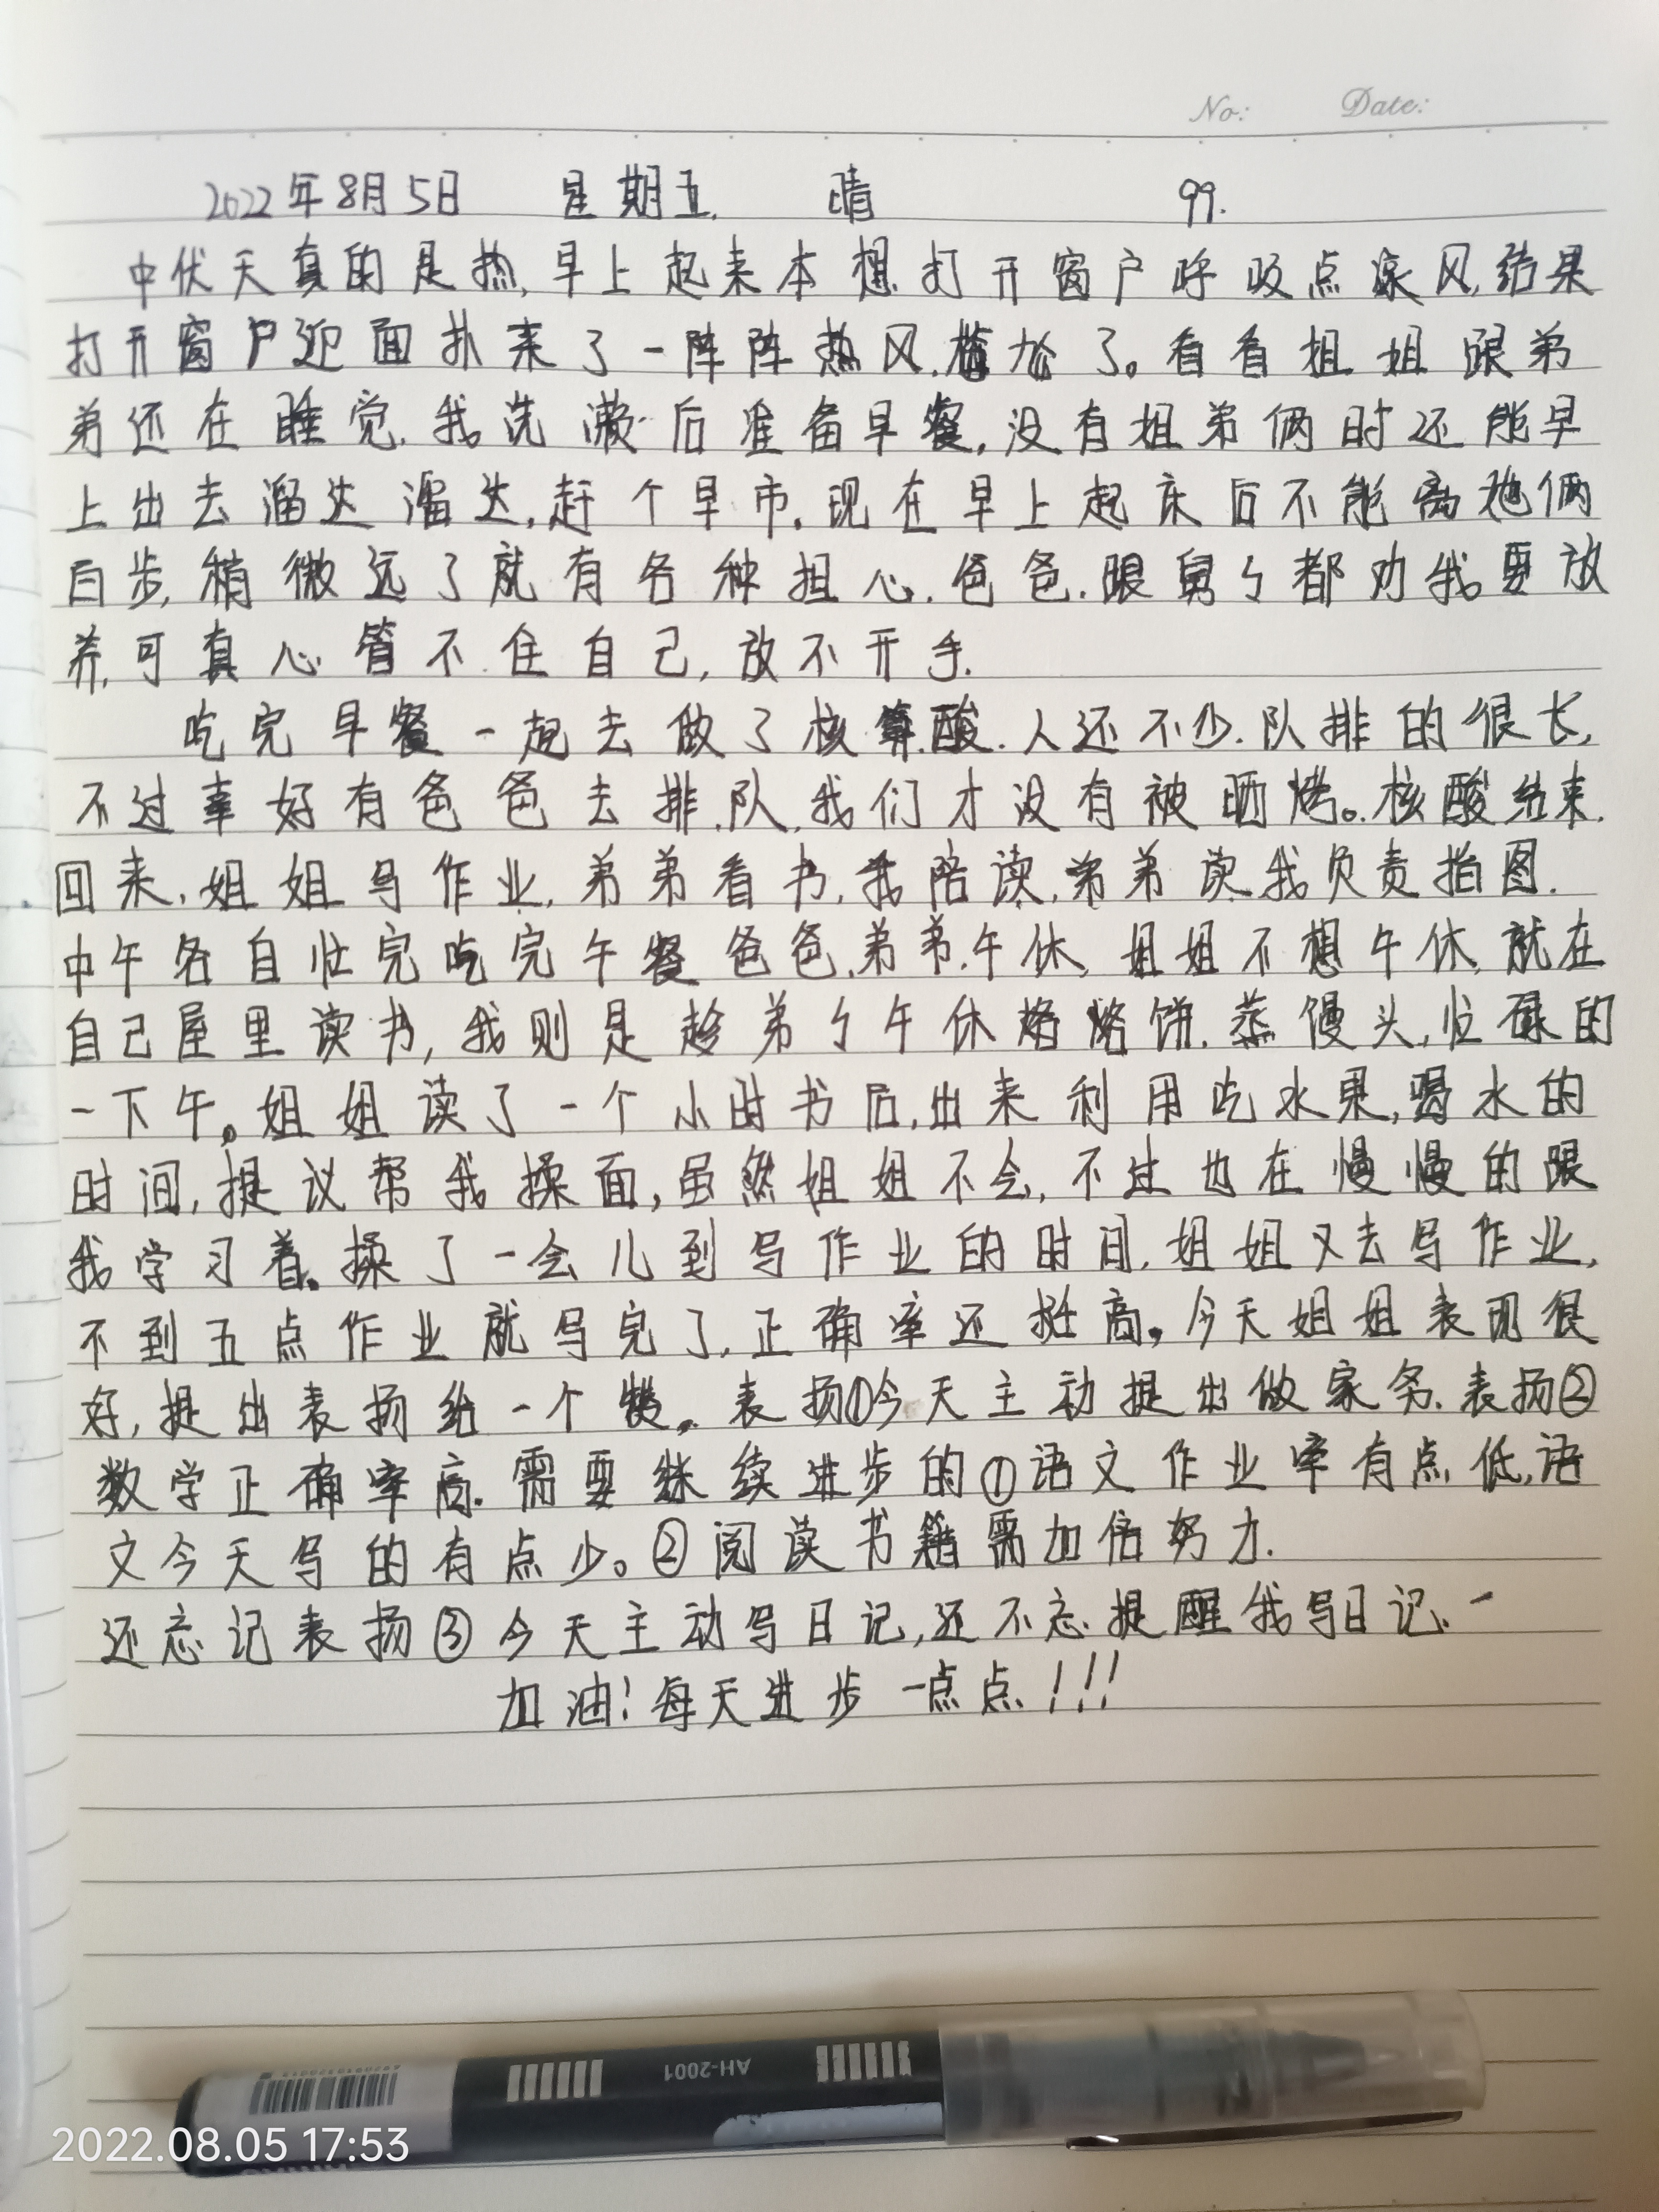 No: Date:
2022年8月5日 星期五. 晴 99.
中伏天真的是热,早上起来本想打开窗户呼吸点凉风,结果
打开窗户迎面扑来了一阵阵热风.尴尬了。看看姐姐跟弟
弟还在睡觉.我洗漱后准备早餐,没有姐弟俩时还能早
上出去溜达溜达,赶个早市.现在早上起床后不能离他俩
百步,稍微远了就有各种担心.爸爸.跟舅々都劝我要放
养,可真心管不住自己,放不开手.
吃完早餐一起去做了核酸.人还不少.队排的很长,
不过幸好有爸爸去排队,我们才没有被晒烤。核酸结束.
回来,姐姐写作业,弟弟看书,我陪读,弟弟读我负责指图.
中午各自忙完吃完午餐爸爸.弟弟.午休,姐姐不想午休,就在
自己屋里读书,我则是趁弟々午休烙烙饼.蒸馒头,忙碌的
一下午。姐姐读了一个小时书后,出来利用吃水果,喝水的
时间,提议帮我揉面,虽然姐姐不会,不过也在慢慢的跟
我学习着.揉了一会儿到写作业的时间,姐姐又去写作业,
不到五点作业就写完了,正确率还挺高。今天姐姐表现很
好,提出表扬给一个赞。表扬①今天主动提出做家务.表扬②
数学正确率高.需要继续进步的①语文作业率有点低,语
文今天写的有点少。②阅读书籍需加倍努力.
还忘记表扬③今天主动写日记,还不忘提醒我写日记.
加油!每天进步一点点!!!
AH-2001
2022.08.05 17:53